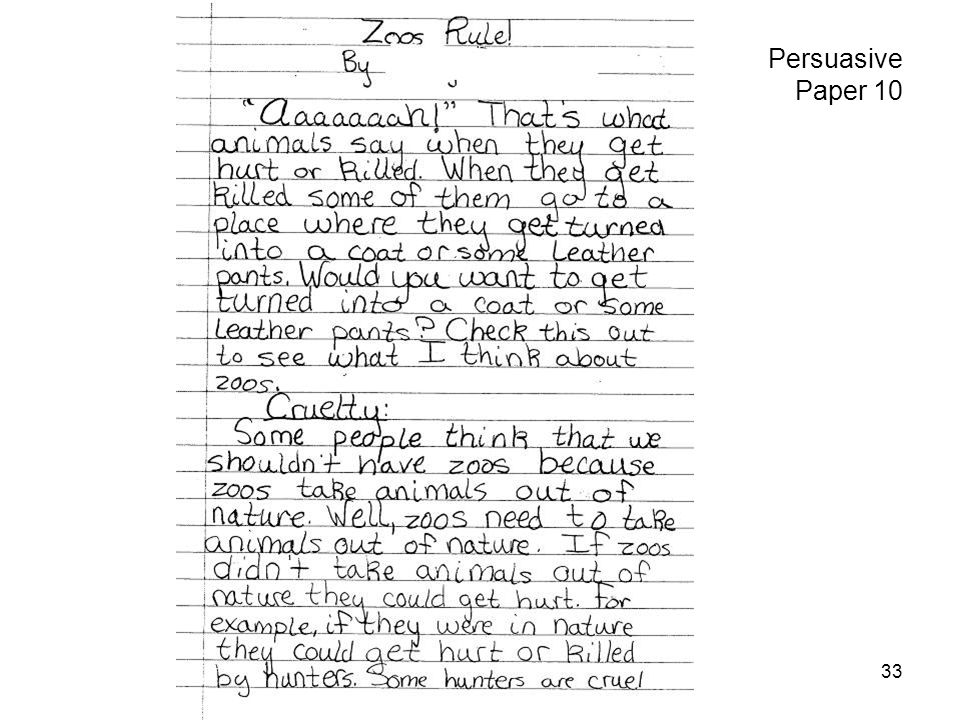 Zoos Rule!
By
"Aaaaaaah!" That's what
animals say when they get
hurt or killed. When they get
killed some of them go to a
place where they get turned
into a coat or some leather
pants. Would you want to get
turned into a coat or some
leather pants? Check this out
to see what I think about
zoos.
Cruelty:
Some people think that we
shouldn't have zoos because
zoos take animals out of
nature. Well, zoos need to take
animals out of nature. If zoos
didn't take animals out of
nature they could get hurt. For
example, if they were in nature
they could get hurt or killed
by hunters. Some hunters are cruel
Persuasive
Paper 10
33